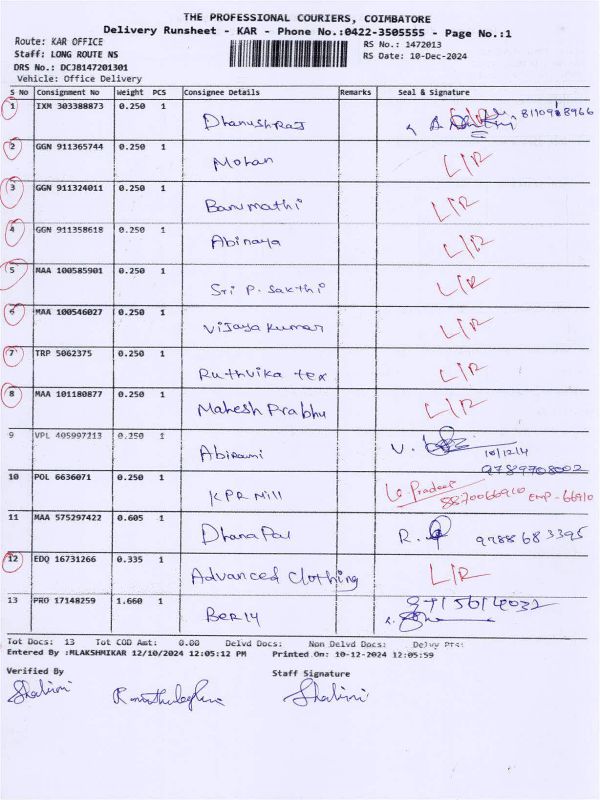 THE PROFESSIONAL COURIERS, COIMBATORE
Delivery Runsheet - KAR - Phone No.:0422-3505555 - Page No.:1
Route: KAR OFFICE
RS No.: 1472013
Staff: LONG ROUTE NS
RS Date: 10-Dec-2024
DRS No.: DCJB147201301
Vehicle: Office Delivery
S No Consignment No Weight PCS Consignee Details Remarks Seal & Signature
1 IXM 303388873 0.250 1 Dhanushraj
2 GGN 911365744 0.250 1 Mohan L/R
3 GGN 911324011 0.250 1 Banumathi L/R
4 GGN 911358618 0.250 1 Abinaya L/R
5 MAA 100585901 0.250 1 Sri P. Sakthi L/R
6 MAA 100546027 0.250 1 Vijaya Kumar L/R
7 TRP 5062375 0.250 1 Ruthvika tex L/R
8 MAA 101180877 0.250 1 Mahesh Prabhu L/R
9 VPL 405997213 0.250 1 Abirami V.
10/12/4
9789708002
10 POL 6636071 0.250 1 KPR Mill Pradeep
8870066910 EMP-66910
11 MAA 575297422 0.605 1 Dhanapal R. 9788683395
12 EDQ 16731266 0.335 1 Advanced Clothing L/R
13 PRO 17148259 1.660 1
Tot Docs: 13 Tot COD Amt: 0.00 Delvd Docs: Non Delvd Docs: Delvy Pts:
Entered By :MLAKSHMIKAR 12/10/2024 12:05:12 PM Printed On: 10-12-2024 12:05:59
Verified By
Staff Signature
Shalini
Shalini